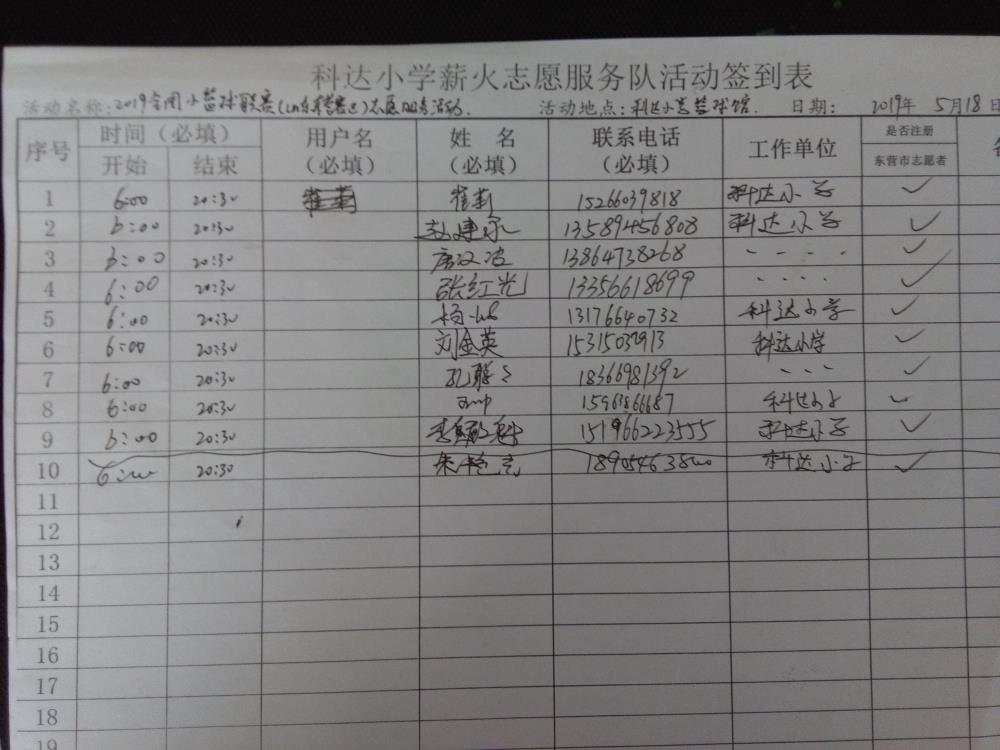 科达小学薪火志愿服务队活动签到表
活动名称:2019全国小篮球联赛(山东东营赛区)志愿服务活动. 活动地点:科达小学篮球馆. 日期: 2019年 5月18日
序号 时间(必填) 用户名(必填) 姓 名(必填) 联系电话(必填) 工作单位 是否注册
开始 结束 东营市志愿者
1 6:00 20:30 崔莉 崔莉 15266039818 科达小学 ✓
2 6:00 20:30 赵建 13589456808 科达小学 ✓
3 6:00 20:30 13864738268 - - - - ✓
4 6:00 20:30 张红光 13356618699 - - - - ✓
5 6:00 20:30 杨 13176640732 科达小学 ✓
6 6:00 20:30 刘金英 15315037913 科达小学 ✓
7 6:00 20:30 孔 18366981392 - - - ✓
8 6:00 20:30 15963866687 科达小学 ✓
9 6:00 20:30 151966223555 科达小学 ✓
10 6:00 20:30 朱 科达小学 ✓
11
12
13
14
15
16
17
18
19